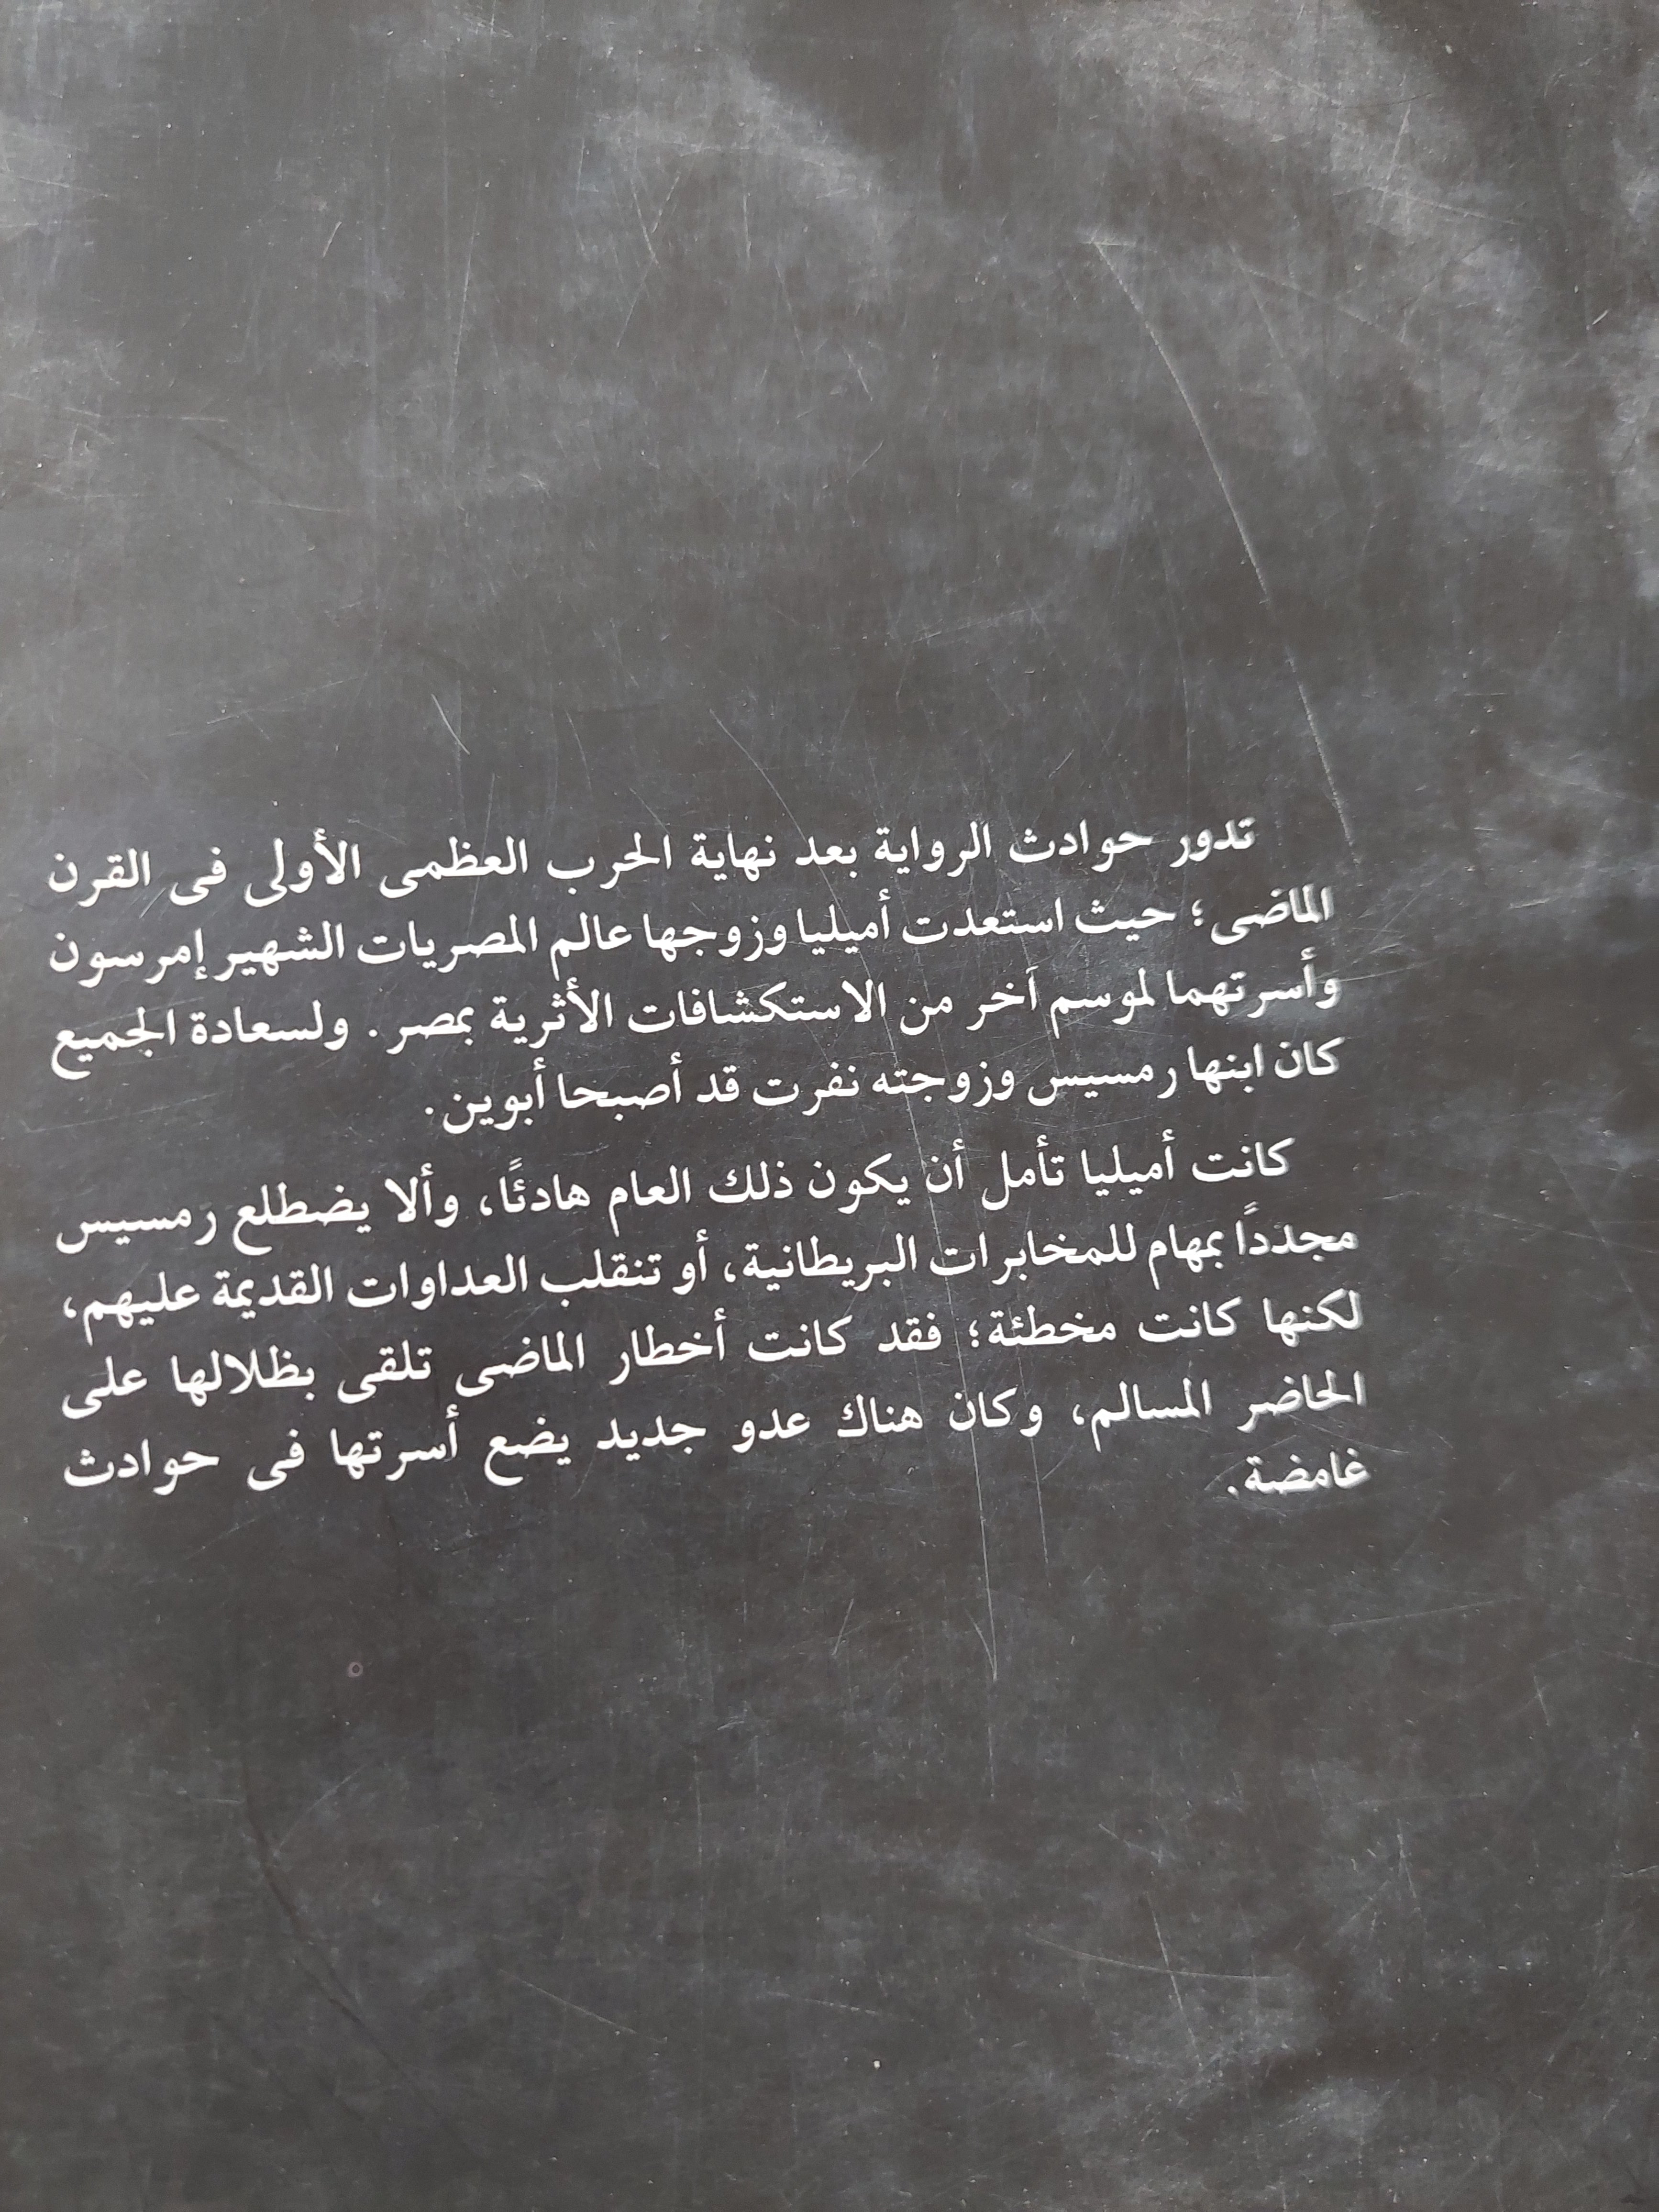 تدور حوادث الرواية بعد نهاية الحرب العظمى الأولى فى القرن
الماضى؛ حيث استعدت أميليا وزوجها عالم المصريات الشهير إمرسون
وأسرتهما لموسم آخر من الاستكشافات الأثرية بمصر. ولسعادة الجميع
كان ابنها رمسيس وزوجته نفرت قد أصبحا أبوين.
كانت أميليا تأمل أن يكون ذلك العام هادئًا، وألا يضطلع رمسيس
مجددًا بمهام للمخابرات البريطانية، أو تنقلب العداوات القديمة عليهم،
لكنها كانت مخطئة؛ فقد كانت أخطار الماضى تلقى بظلالها على
الحاضر المسالم، وكان هناك عدو جديد يضع أسرتها فى حوادث
غامضة.